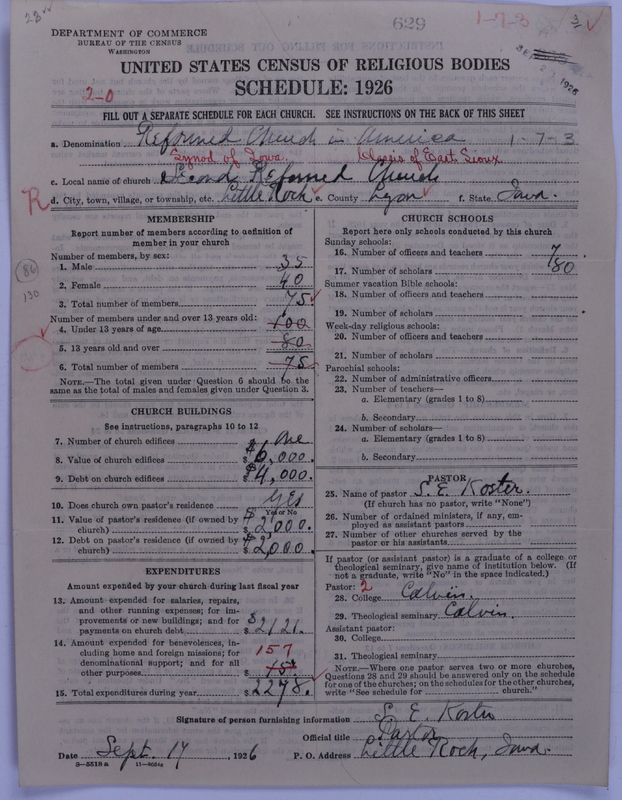 23
629
1-7-3
3
DEPARTMENT OF COMMERCE
BUREAU OF THE CENSUS
WASHINGTON
1926
UNITED STATES CENSUS OF RELIGIOUS BODIES
SCHEDULE: 1926
2-0
FILL OUT A SEPARATE SCHEDULE FOR EACH CHURCH. SEE INSTRUCTIONS ON THE BACK OF THIS SHEET
a. Denomination Reformed Church in America 1-7-3
Synod of Iowa. Classis of East Sioux
c. Local name of church Second Reformed Church
R d. City, town, village, or township, etc. Little Rock e. County Lyon f. State Iowa.
MEMBERSHIP
Report number of members according to definition of
member in your church
Number of members, by sex:
1. Male 35
2. Female 40
3. Total number of members 75
Number of members under and over 13 years old:
4. Under 13 years of age 100
5. 13 years old and over 80
6. Total number of members 75
NOTE.—The total given under Question 6 should be the
same as the total of males and females given under Question 3.
86
130
CHURCH BUILDINGS
See instructions, paragraphs 10 to 12
7. Number of church edifices One
8. Value of church edifices $ 6,000.
9. Debt on church edifices $ 4,000.
10. Does church own pastor's residence Yes
Yes or No
11. Value of pastor's residence (if owned by
church) $ 2,000.
12. Debt on pastor's residence (if owned by
church) $ 2,000.
EXPENDITURES
Amount expended by your church during last fiscal year
13. Amount expended for salaries, repairs,
and other running expenses; for im-
provements or new buildings; and for
payments on church debt $ 2121.
14. Amount expended for benevolences, in-
cluding home and foreign missions; for
denominational support; and for all
other purposes $ 157
15. Total expenditures during year $ 2278.
CHURCH SCHOOLS
Report here only schools conducted by this church
Sunday schools:
16. Number of officers and teachers 7
17. Number of scholars 80
Summer vacation Bible schools:
18. Number of officers and teachers
19. Number of scholars
Week-day religious schools:
20. Number of officers and teachers
21. Number of scholars
Parochial schools:
22. Number of administrative officers
23. Number of teachers—
a. Elementary (grades 1 to 8)
b. Secondary
24. Number of scholars—
a. Elementary (grades 1 to 8)
b. Secondary
PASTOR
25. Name of pastor S. E. Koster.
(If church has no pastor, write "None")
26. Number of ordained ministers, if any, em-
ployed as assistant pastors
27. Number of other churches served by the
pastor or his assistants
If pastor (or assistant pastor) is a graduate of a college or
theological seminary, give name of institution below. (If
not a graduate, write "No" in the space indicated.)
Pastor: 2
28. College Calvin.
29. Theological seminary Calvin.
Assistant pastor:
30. College
31. Theological seminary
NOTE.—Where one pastor serves two or more churches,
Questions 28 and 29 should be answered only on the schedule
for one of the churches; on the schedules for the other churches,
write "See schedule for church."
Signature of person furnishing information S. E. Koster
Official title Pastor
Date Sept. 17, 1926 P. O. Address Little Rock, Iowa.
8—5518a 11—8034a